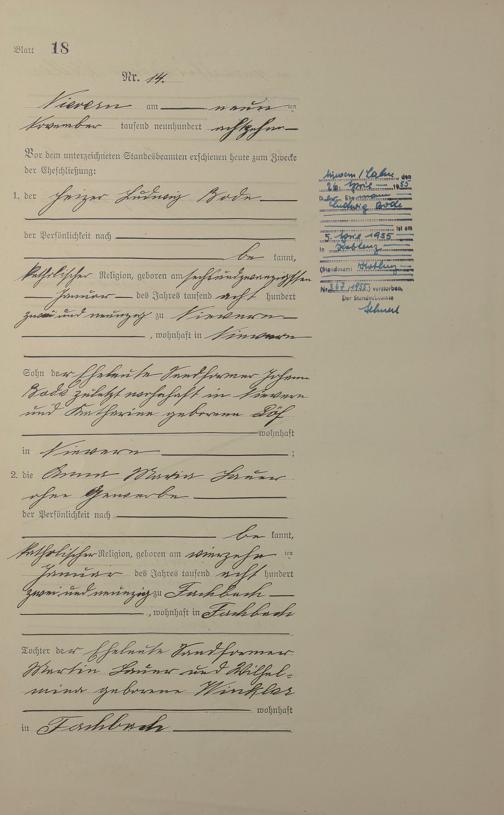 Blatt 18
Nr. 14.
Nievern am neunten
November tausend neunhundert achtzehn
Vor dem unterzeichneten Standesbeamten erschienen heute zum Zwecke
der Eheschließung:
1. der Heizer Ludwig Bode
der Persönlichkeit nach
be kannt,
katholischer Religion, geboren am sechsundzwanzigsten
Januar des Jahres tausend acht hundert
zwei und neunzig zu Nievern
, wohnhaft in Nievern
Sohn der Eheleute Sandformer Johann
Bode zuletzt wohnhaft in Nievern
und Katharine geborene
wohnhaft
in Nievern ;
2. die Anna Maria Lauer
ohne Gewerbe
der Persönlichkeit nach
be kannt,
katholischer Religion, geboren am vierzehn ten
Januar des Jahres tausend acht hundert
zwei und neunzig zu Fachbach
, wohnhaft in Fachbach
Tochter der Eheleute Sandformer
Martin Lauer und Wilhel-
mina geborene Winkler
wohnhaft
in Fachbach
Nievern/Lahn, den
26. April 1955
Der Ehemann
Ludwig Bode
ist am
5. April 1955
in Koblenz
(Standesamt Koblenz
Nr. 367/1955) verstorben.
Der Standesbeamte